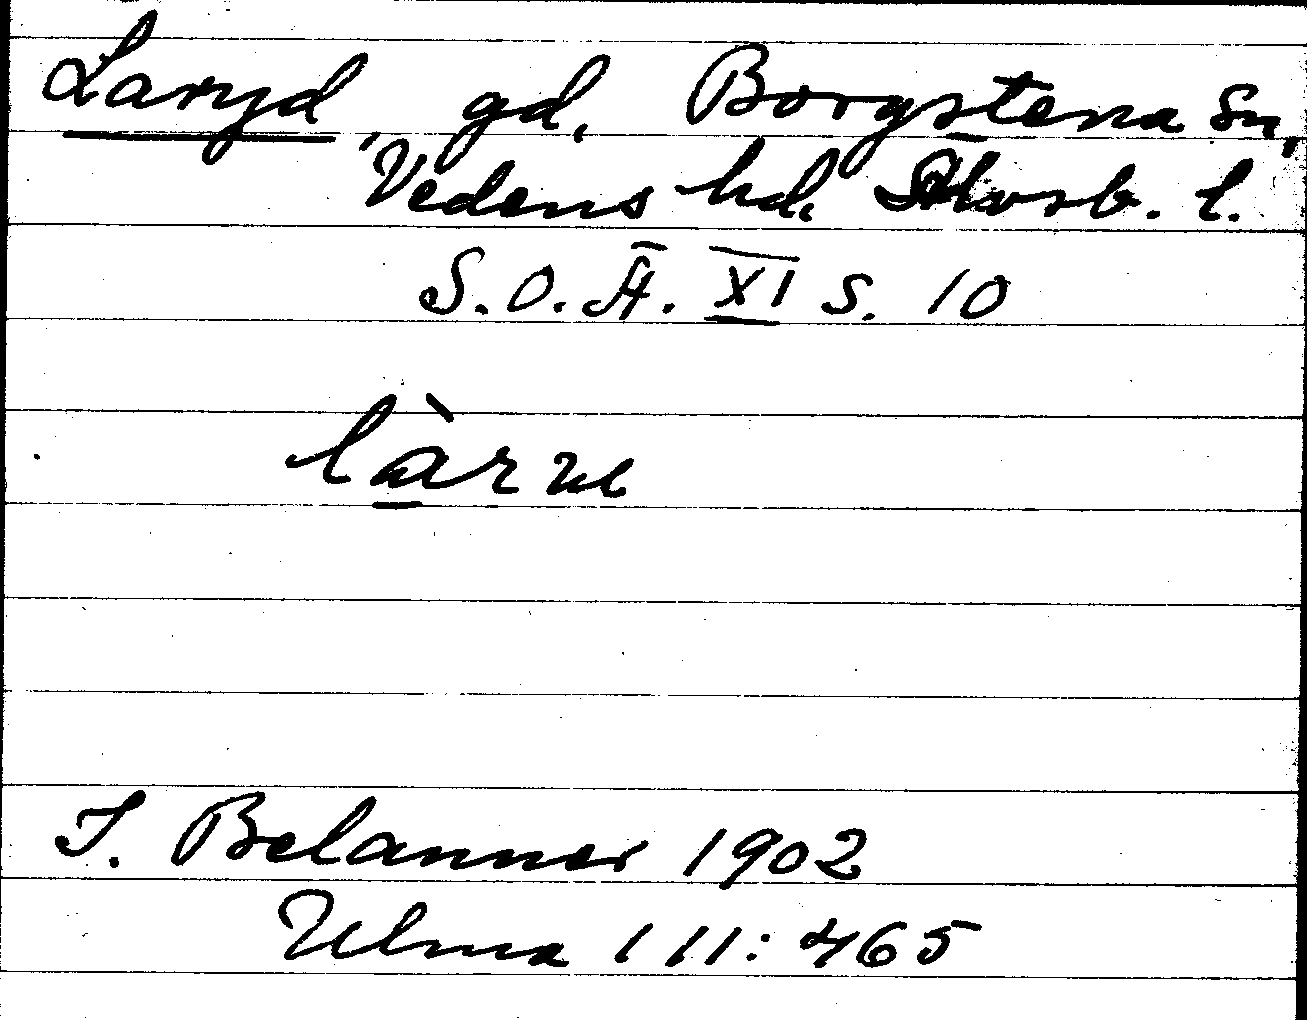 Laryd, gd, Borgstena sn,
Vedens hd. Älvsb. l.
S.O.Ä. XI s. 10
J. Belanner 1902
Ulma 111:465